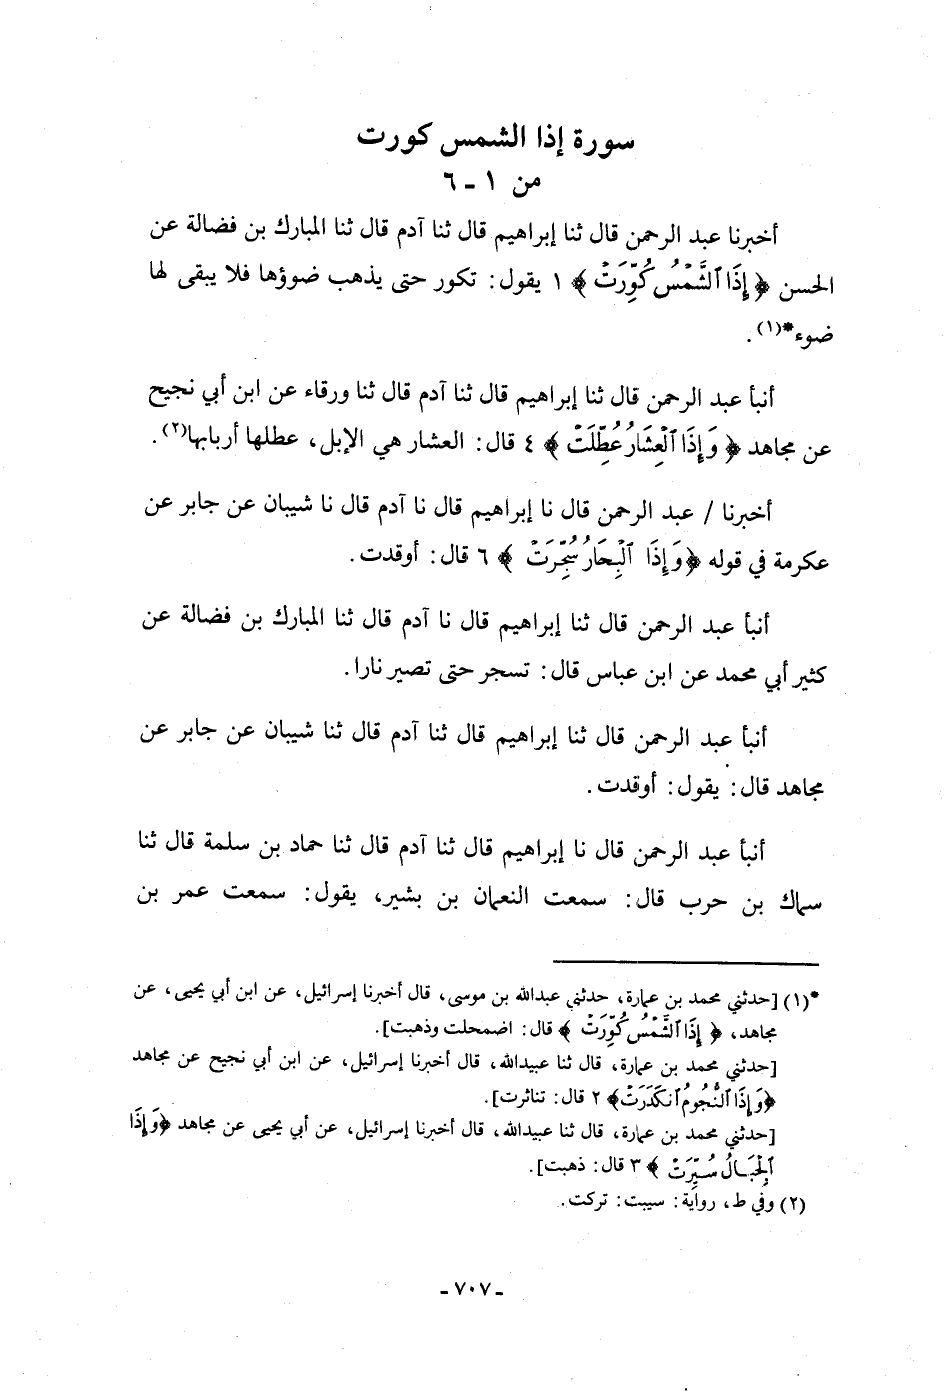 سورة إذا الشمس كورت
من ١ - ٦
أخبرنا عبد الرحمن قال ثنا إبراهيم قال ثنا آدم قال ثنا المبارك بن فضالة عن
الحسن ﴿ إِذَا ٱلشَّمْسُ كُوِّرَتْ ﴾ ١ يقول: تكور حتى يذهب ضوؤها فلا يبقى لها
ضوء*(١).
أنبأ عبد الرحمن قال ثنا إبراهيم قال ثنا آدم قال ثنا ورقاء عن ابن أبي نجيح
عن مجاهد ﴿ وَإِذَا ٱلْعِشَارُ عُطِّلَتْ ﴾ ٤ قال: العشار هي الإبل، عطلها أربابها(٢).
أخبرنا / عبد الرحمن قال نا إبراهيم قال نا آدم قال نا شيبان عن جابر عن
عكرمة في قوله ﴿وَإِذَا ٱلْبِحَارُ سُجِّرَتْ ﴾ ٦ قال: أوقدت.
أنبأ عبد الرحمن قال ثنا إبراهيم قال نا آدم قال ثنا المبارك بن فضالة عن
كثير أبي محمد عن ابن عباس قال: تسجر حتى تصير نارا.
أنبأ عبد الرحمن قال ثنا إبراهيم قال ثنا آدم قال ثنا شيبان عن جابر عن
مجاهد قال: يقول: أوقدت.
أنبأ عبد الرحمن قال نا إبراهيم قال ثنا آدم قال ثنا حماد بن سلمة قال ثنا
سماك بن حرب قال: سمعت النعمان بن بشير، يقول: سمعت عمر بن
*(١) [حدثني محمد بن عمارة، حدثني عبدالله بن موسى، قال أخبرنا إسرائيل، عن ابن أبي يحيى، عن
مجاهد، ﴿ إِذَا ٱلشَّمْسُ كُوِّرَتْ ﴾ قال: اضمحلت وذهبت].
[حدثني محمد بن عمارة، قال ثنا عبيدالله، قال أخبرنا إسرائيل، عن ابن أبي نجيح عن مجاهد
﴿وَإِذَا ٱلنُّجُومُ ٱنكَدَرَتْ﴾ ٢ قال: تناثرت].
[حدثني محمد بن عمارة، قال ثنا عبيدالله، قال أخبرنا إسرائيل، عن أبي يحيى عن مجاهد ﴿وَإِذَا
ٱلْجِبَالُ سُيِّرَتْ ﴾ ٣ قال: ذهبت].
(٢) وفي ط، رواية: سيبت: تركت.
- ٧٠٧ -